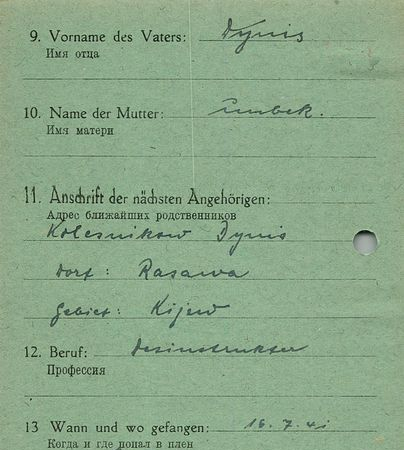 9. Vorname des Vaters: Dynis
Имя отца
10. Name der Mutter: unbek.
Имя матери
11. Anschrift der nächsten Angehörigen:
Адрес ближайших родственников
Kolesnikow Dynis
Dorf: Rasawa
Gebiet: Kijew
12. Beruf: Desinstruktor
Профессия
13 Wann und wo gefangen: 16.7.41
Когда и где попал в плен